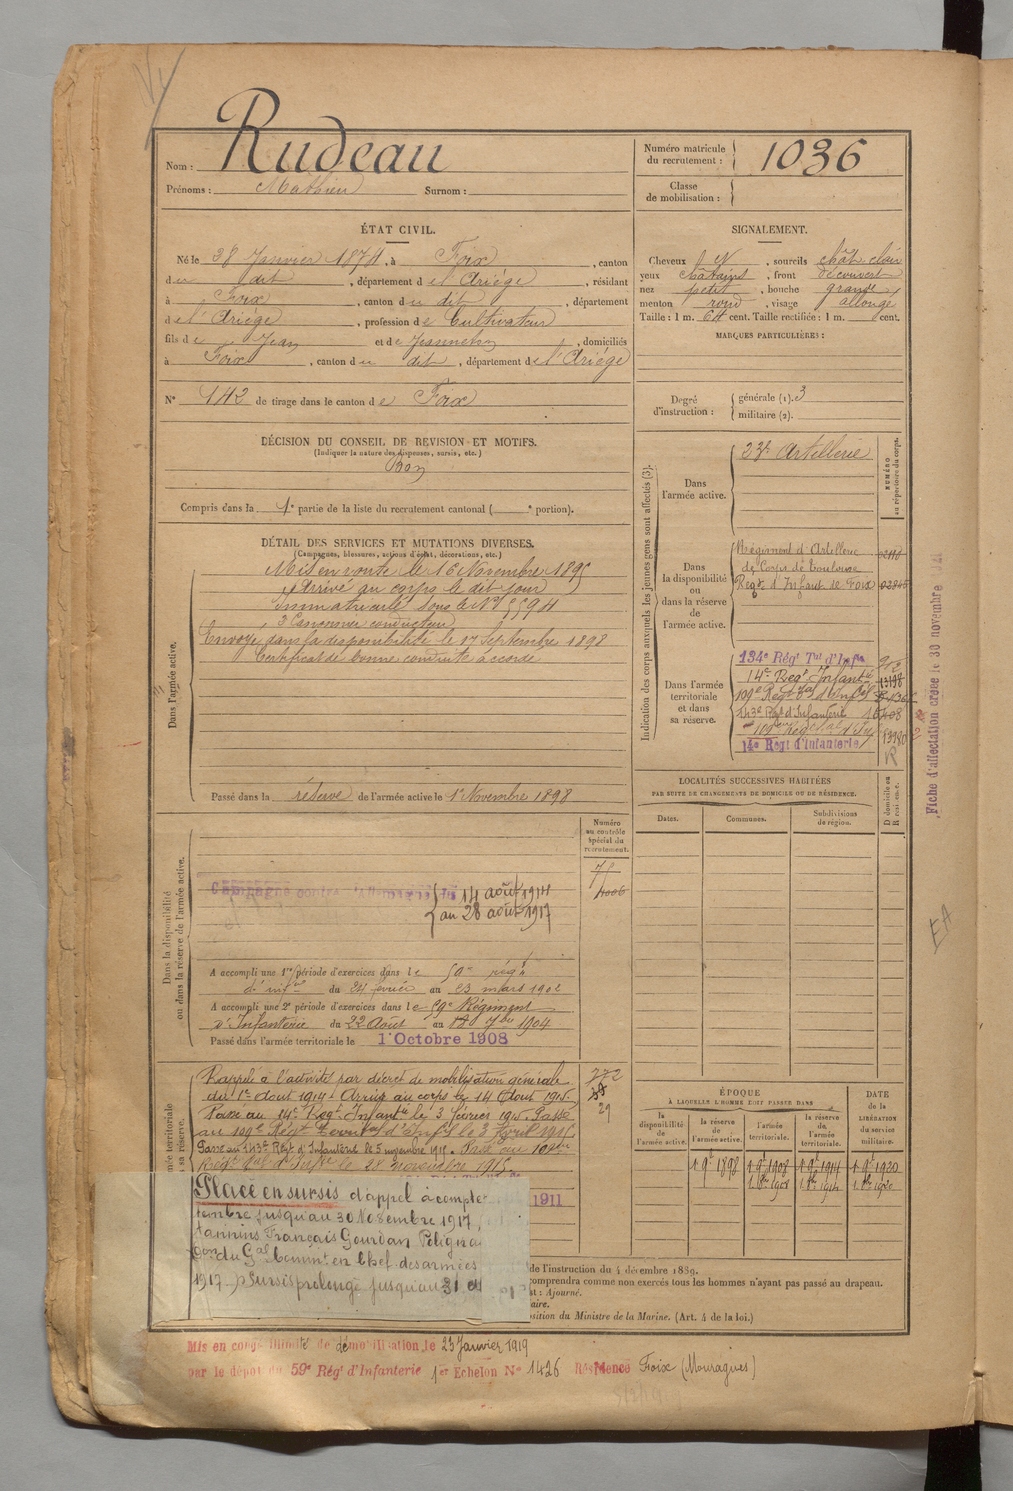 Rudeau
Nom :
Prénoms : Mathieu Surnom :
Numéro matricule du recrutement : 1036
Classe de mobilisation :
ÉTAT CIVIL.
Né le 28 Janvier 1874, à Foix, canton
du dit, département de l'Ariége, résidant
à Foix, canton du dit, département
de l'Ariége, profession de Cultivateur
fils de Jean et de Jeanneton, domiciliés
à Foix, canton du dit, département de l'Ariége
N° 142 de tirage dans le canton de Foix
SIGNALEMENT.
Cheveux N, sourcils chât. clair
yeux châtains, front découvert
nez petit, bouche grande
menton rond, visage allongé
Taille : 1 m. 64 cent. Taille rectifiée : 1 m. cent.
MARQUES PARTICULIÈRES :
Degré d'instruction : générale (1). 3
militaire (2).
DÉCISION DU CONSEIL DE REVISION ET MOTIFS.
(Indiquer la nature des dispenses, sursis, etc.)
Bon
Compris dans la 1e partie de la liste du recrutement cantonal ( e portion).
DÉTAIL DES SERVICES ET MUTATIONS DIVERSES.
(Campagnes, blessures, actions d'éclat, décorations, etc.)
Dans l'armée active.
Mis en route le 16 Novembre 1895
Arrivé au corps le dit jour
Immatriculé sous le N° 5594
2e Canonnier conducteur
Envoyé dans la disponibilité le 17 Septembre 1898
Certificat de bonne conduite accordé
Passé dans la réserve de l'armée active le 1er Novembre 1898
Indication des corps auxquels les jeunes gens sont affectés (3).
NUMÉRO au répertoire du corps.
Dans l'armée active.
23e Artillerie
Dans la disponibilité ou dans la réserve de l'armée active.
Régiment d'Artillerie
de Corps de Toulouse
Régt d'Infant de Foix
Dans l'armée territoriale et dans sa réserve.
134e Régt Tal d'Infie
14e Régt Infantie
143e Régt d'Infanterie
14e Régt d'Infanterie
Fiche d'affectation créée le 30 novembre
LOCALITÉS SUCCESSIVES HABITÉES
PAR SUITE DE CHANGEMENTS DE DOMICILE OU DE RÉSIDENCE.
Dates. Communes. Subdivisions de région. D domicile ou R résidence.
Dans la disponibilité ou dans la réserve de l'armée active.
Numéro au contrôle spécial du recrutement.
Campagne contre l'Allemagne du 14 août 1914
au 28 août 1917
A accompli une 1re période d'exercices dans le 59e régt
d'infrie du 24 février au 23 mars 1902
A accompli une 2e période d'exercices dans le 59e Régiment
d'Infanterie du 22 Août au 18 7bre 1904
Passé dans l'armée territoriale le 1er Octobre 1908
Rappelé à l'activité par décret de mobilisation générale
du 1er Aout 1914. Arrivé au corps le 14 Aout 1914.
Passé au 14e Régt Infantie le 3 février 1915. Passé
au 109e Régt Territal d'Infie le 3 Avril 1915.
Passé au 143e Régt d'Infanterie le 5 novembre 1915.
le 28 novembre 1915.
772
29
1911
Placé en sursis d'appel à compter
jusqu'au 30 Novembre 1917
tannins Français Gourdan Polignan
du Gal Commt en Chef des armées
1917. Sursis prolongé jusqu'au 31
ÉPOQUE
À LAQUELLE L'HOMME DOIT PASSER DANS
la disponibilité de l'armée active. la réserve de l'armée active. l'armée territoriale. la réserve de l'armée territoriale. DATE de la LIBÉRATION du service militaire.
1 9e 1898 1 9e 1908 1 9e 1914 1 9e 1920
de l'instruction du 4 décembre 1889.
comprendra comme non exercés tous les hommes n'ayant pas passé au drapeau.
: Ajourné.
position du Ministre de la Marine. (Art. 4 de la loi.)
Mis en congé illimité de démobilisation le 23 Janvier 1919
par le dépôt du 59e Régt d'Infanterie 1er Echelon N° 1426 Résidence Foix (Mouragues)
EA